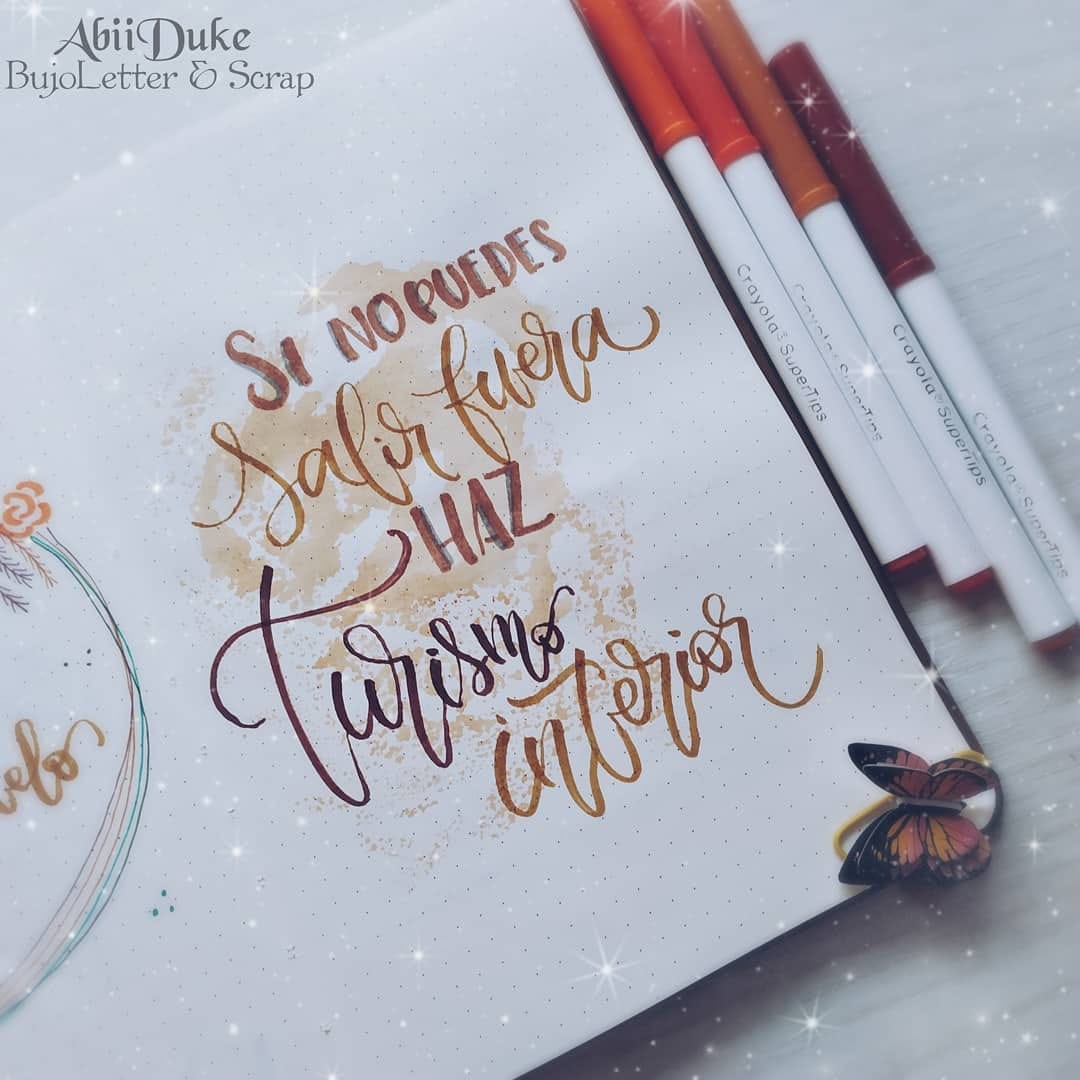 AbiiDuke
BujoLetter & Scrap
SI NO PUEDES
Salir fuera
HAZ
Turismo
interior
Crayola® SuperTips
Crayola® SuperTips
Crayola® SuperTips
Crayola® SuperTips